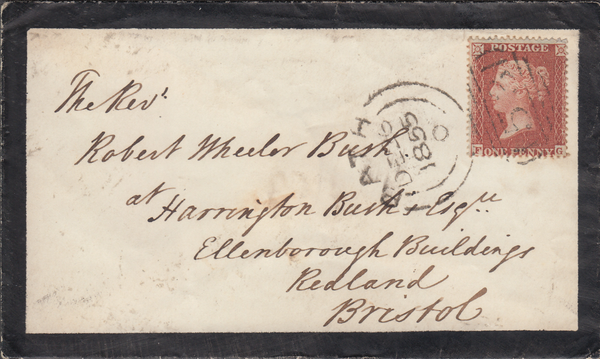 POSTAGE
F ONE PENNY G
BATH
1855
The Revd.
Robert Wheeler Bush
at Harrington Bush Esqre
Ellenborough Buildings
Redland
Bristol